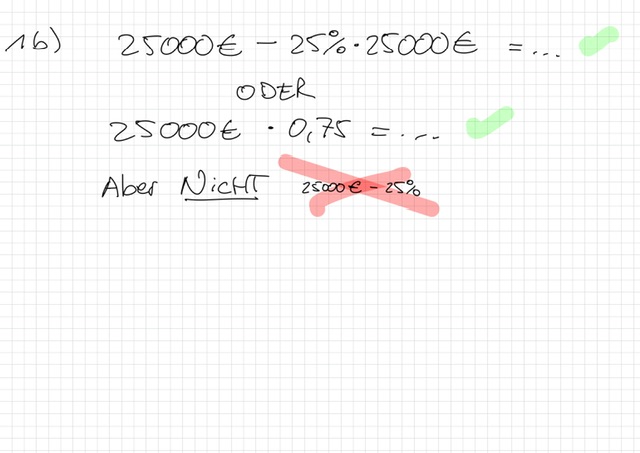 1b) 25000€ - 25%·25000€ = ...
ODER
25000€ · 0,75 = ...
Aber NICHT 25000€ - 25%